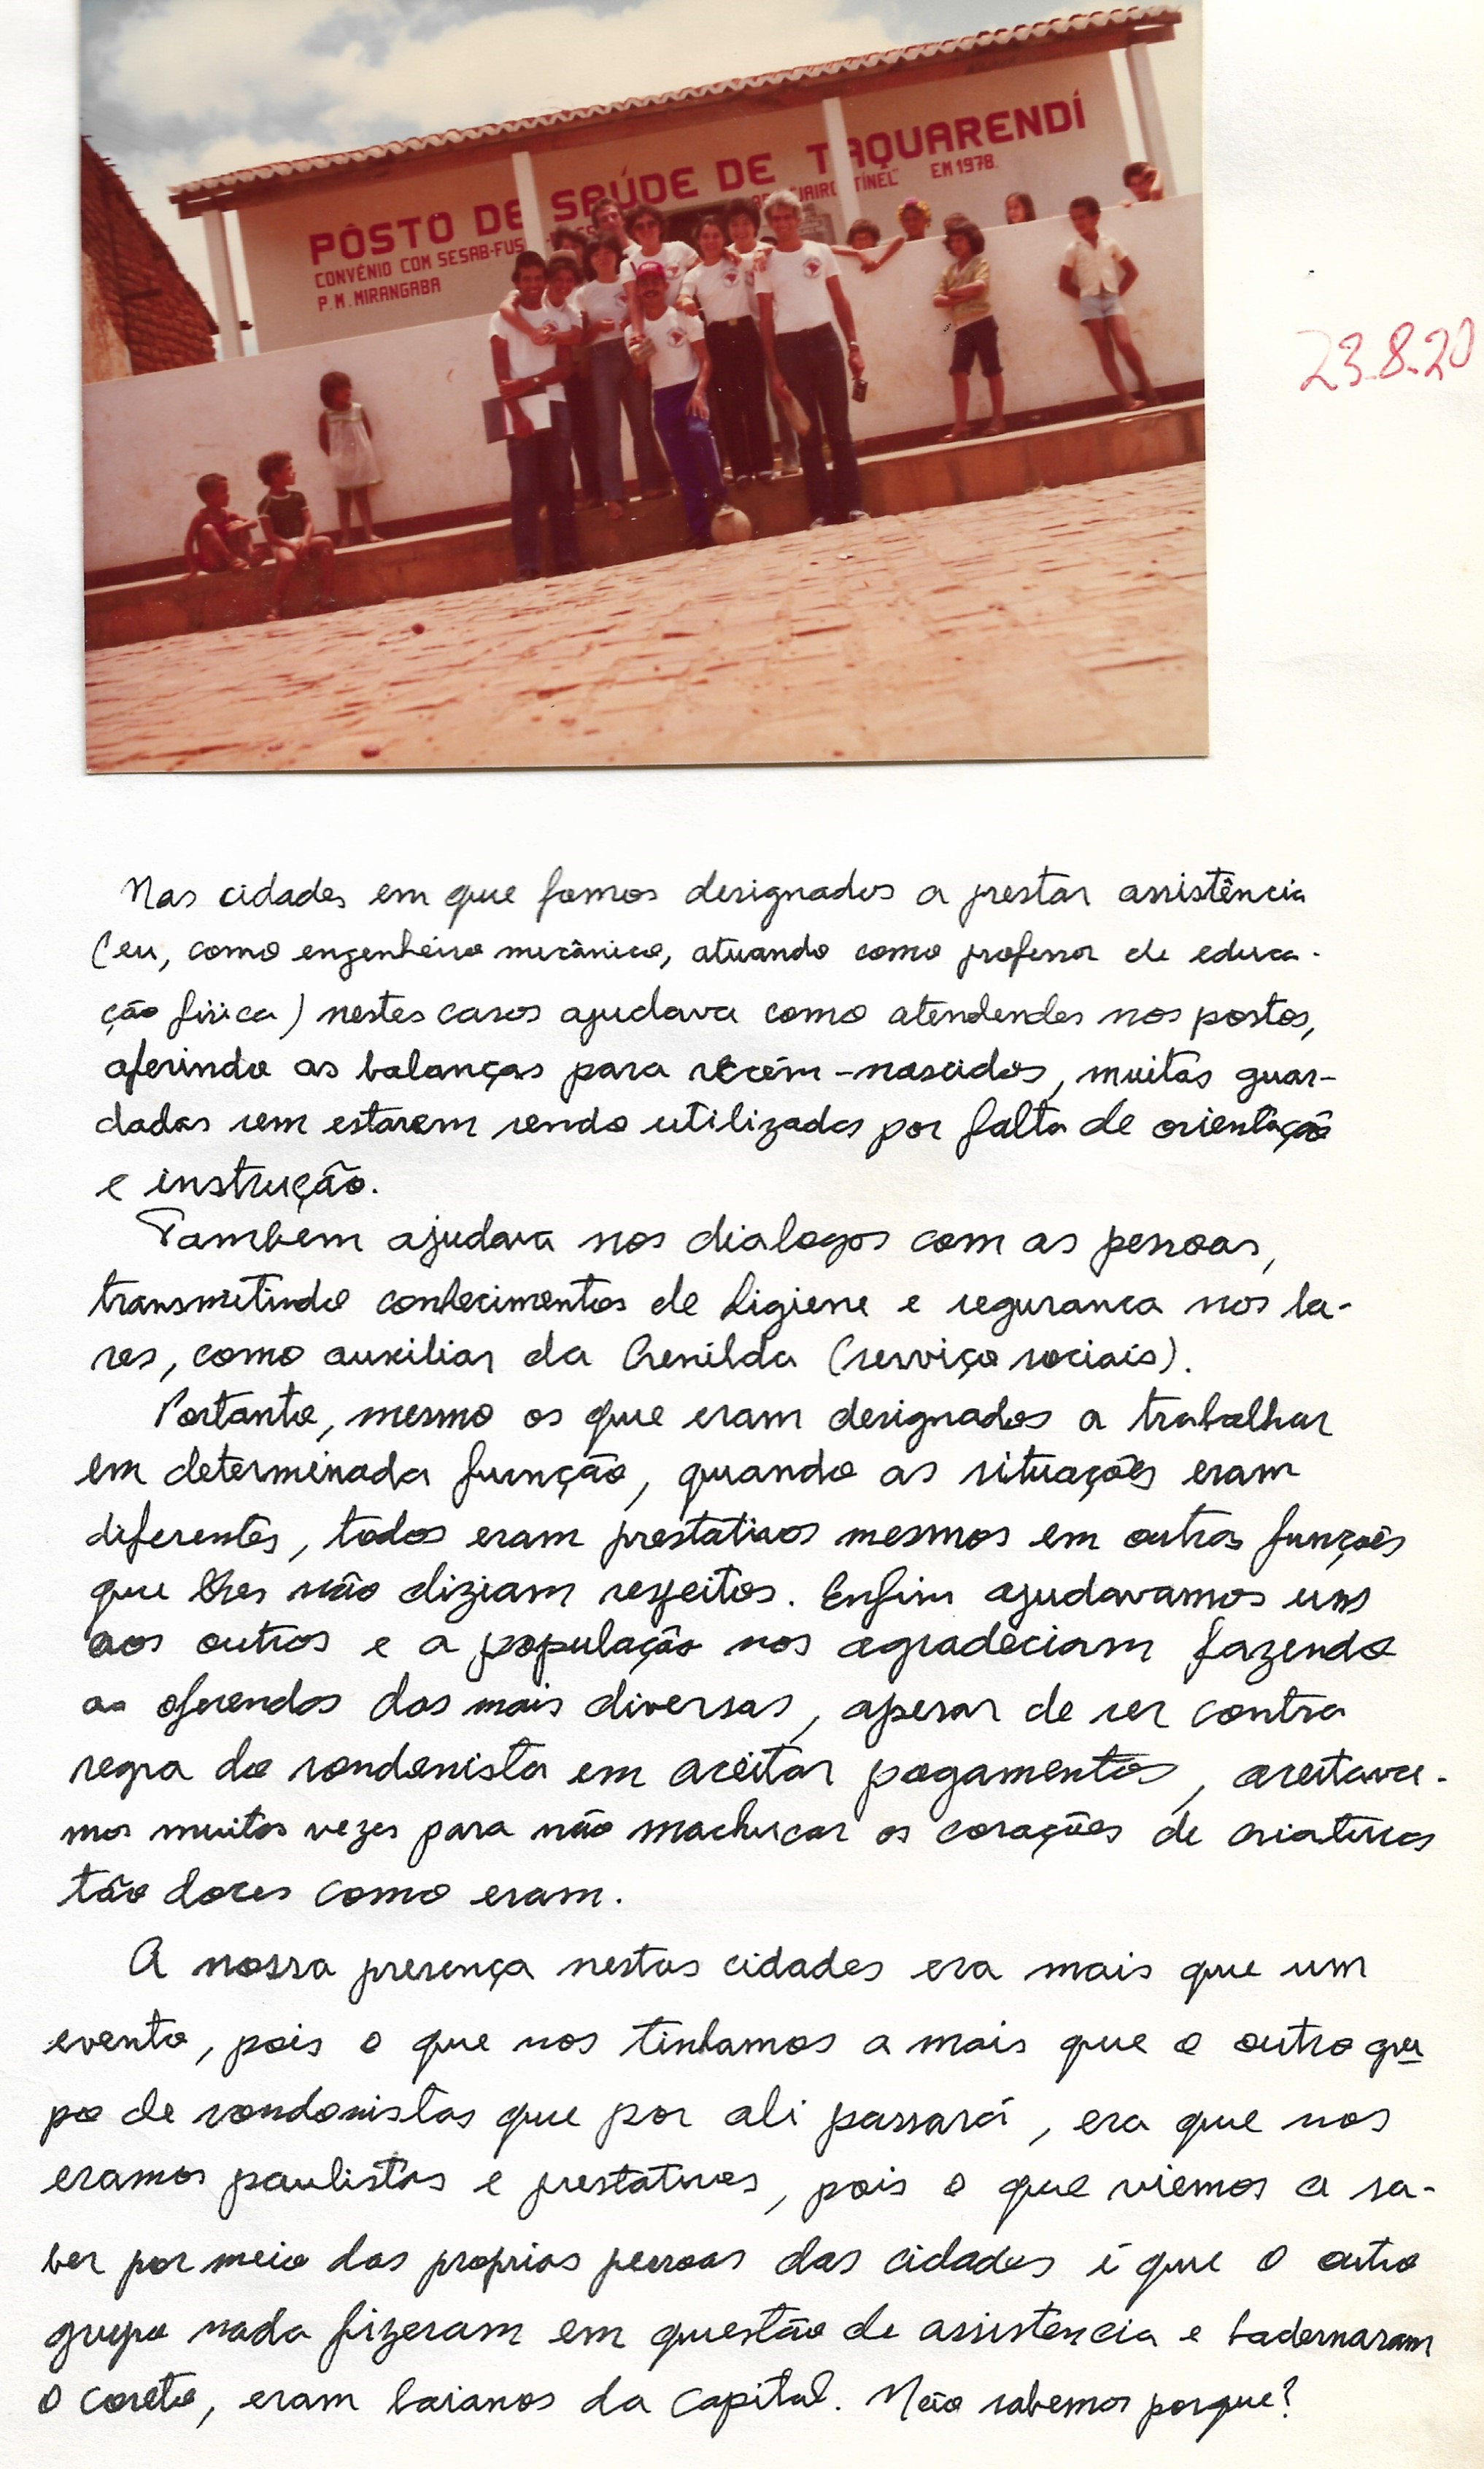 PÔSTO DE SAÚDE DE TAQUARENDÍ
CONVÊNIO COM SESAB-FUS
TINEL" EM 1978.
P.M. MIRANGABA
23.8.20
Nas cidades em que fomos designados a prestar assistência
(eu, como engenheiro mecânico, atuando como professor de educa-
ção física) nestes casos ajudava como atendendes nos postos,
aferindo as balanças para recém-nascidos, muitas guar-
dadas sem estarem sendo utilizadas por falta de orientação
e instrução.
Tambem ajudava nos dialogos com as pessoas,
transmitindo conhecimentos de higiene e seguranca nos la-
res, como auxiliar da Grenilda (serviço sociais).
Portanto, mesmo os que eram designados a trabalhar
em determinada função, quando as situações eram
diferentes, todos eram prestativos mesmos em outras funções
que lhes não diziam respeitos. Enfim ajudavamos uns
aos outros e a população nos agradeciam fazendo
as oferendas das mais diversas, apesar de ser contra
regra do rondonista em aceitar pagamentos, aceitava-
mos muitas vezes para não machucar os corações de criaturas
tão doces como eram.
A nossa presença nestas cidades era mais que um
evento, pois o que nos tinhamos a mais que o outro gru
po de rondonistas que por ali passará, era que nos
eramos paulistas e prestativos, pois o que viemos a sa-
ber por meio das proprias pessoas das cidades é que o outro
grupo nada fizeram em questão de assistencia e badernaram
o coreto, eram baianos da capital. Não sabemos porque?